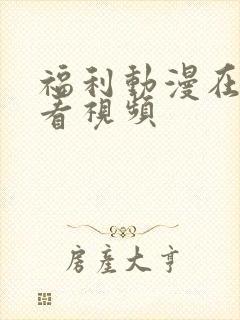 福利動漫在
看視頻
房產大亨